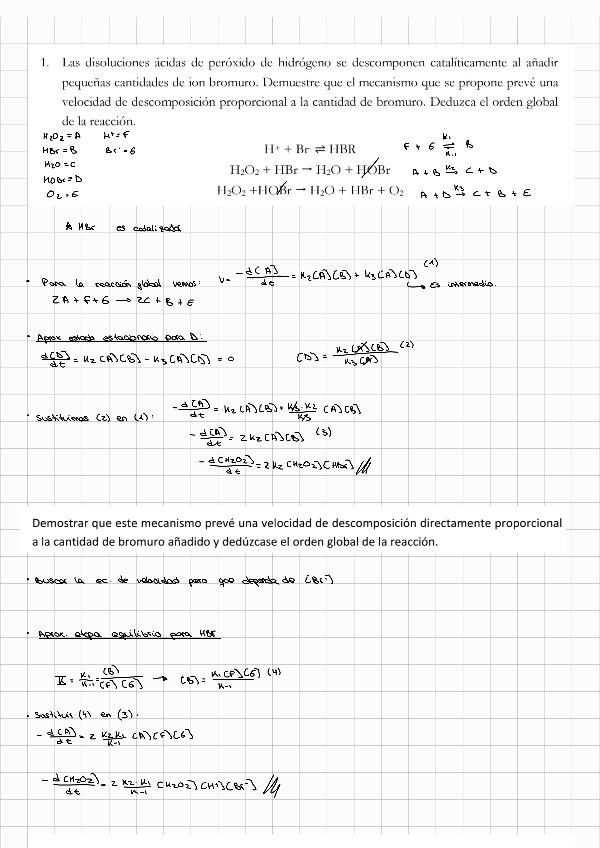 1. Las disoluciones ácidas de peróxido de hidrógeno se descomponen catalíticamente al añadir
pequeñas cantidades de ion bromuro. Demuestre que el mecanismo que se propone prevé una
velocidad de descomposición proporcional a la cantidad de bromuro. Deduzca el orden global
de la reacción.
H₂O₂ = A H⁺ = F
HBr = B Br⁻ = G
H₂O = C
HOBr = D
O₂ = E
H⁺ + Br ⇌ HBR
H₂O₂ + HBr → H₂O + HOBr
H₂O₂ + HOBr → H₂O + HBr + O₂
F + G ⇌ B K₁ K₋₁
A + B →K₂ C + D
A + D →K₃ C + B + E
HBr es catalizador
• Para la reacción global vemos: V = -d[A]/dt = K₂[A][B] + K₃[A][D] (1)
→ Es intermedio.
2A + F + G → 2C + B + E
• Aprox estado estacionario para D:
d[D]/dt = K₂[A][B] - K₃[A][D] = 0 [D] = K₂[A][B]/K₃[A] (2)
• Sustituimos (2) en (1): -d[A]/dt = K₂[A][B] + K₃·K₂/K₃ [A][B]
-d[A]/dt = 2K₂[A][B] (3)
-d[H₂O₂]/dt = 2K₂[H₂O₂][HBr]
Demostrar que este mecanismo prevé una velocidad de descomposición directamente proporcional
a la cantidad de bromuro añadido y dedúzcase el orden global de la reacción.
• Buscar la ec. de velocidad para que dependa de [Br⁻]
• Aprox. etapa equilibrio para HBr
K = K₁/K₋₁ = [B]/[F][G] → [B] = K₁[F][G]/K₋₁ (4)
• Sustituir (4) en (3).
-d[A]/dt = 2 K₂K₁/K₋₁ [A][F][G]
-d[H₂O₂]/dt = 2 K₂·K₁/K₋₁ [H₂O₂][H⁺][Br⁻]